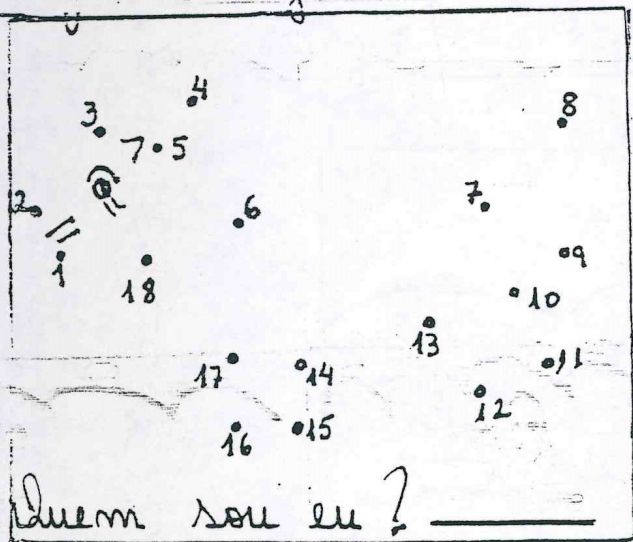 4
3
8
7 5
2
7
6
9
1
18
10
13
17
14
11
12
16
15
Quem sou eu?